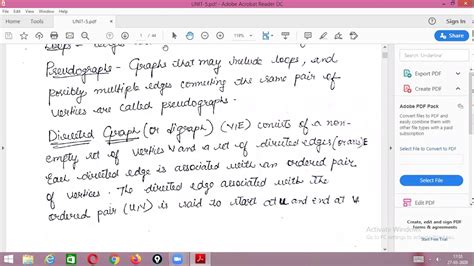 UNIT-5.pdf - Adobe Acrobat Reader DC
File Edit View Window Help
Home Tools UNIT-5.pdf
Sign In
Pseudographs - Graphs that may include loops, and
possibly multiple edges connecting the same pair of
vertices are called pseudographs.
Directed Graph (or digraph) (V,E) consists of a non-
empty set of vertices V and a set of directed edges (or arcs) E
Each directed edge is associated with an ordered pair
of vertices. The directed edge associated with the
ordered pair (u,v) is said to start at u and end at v
Export PDF
Create PDF
Adobe PDF Pack
Convert files to PDF and
easily combine them with
other file types with a paid
subscription
Select File to Convert to PDF
Select a File
Activate Windows
Create, edit and sign PDF
forms & agreements
Start Free Trial